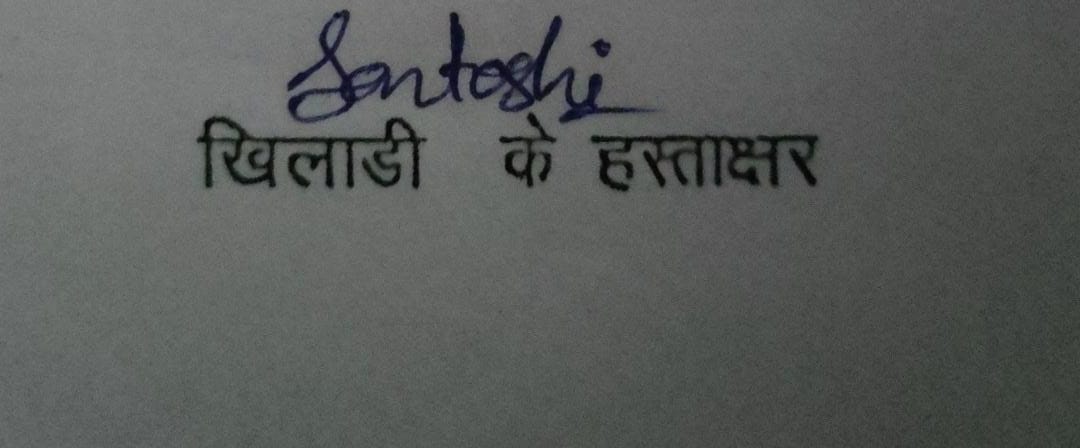 Santoshi
खिलाडी के हस्ताक्षर